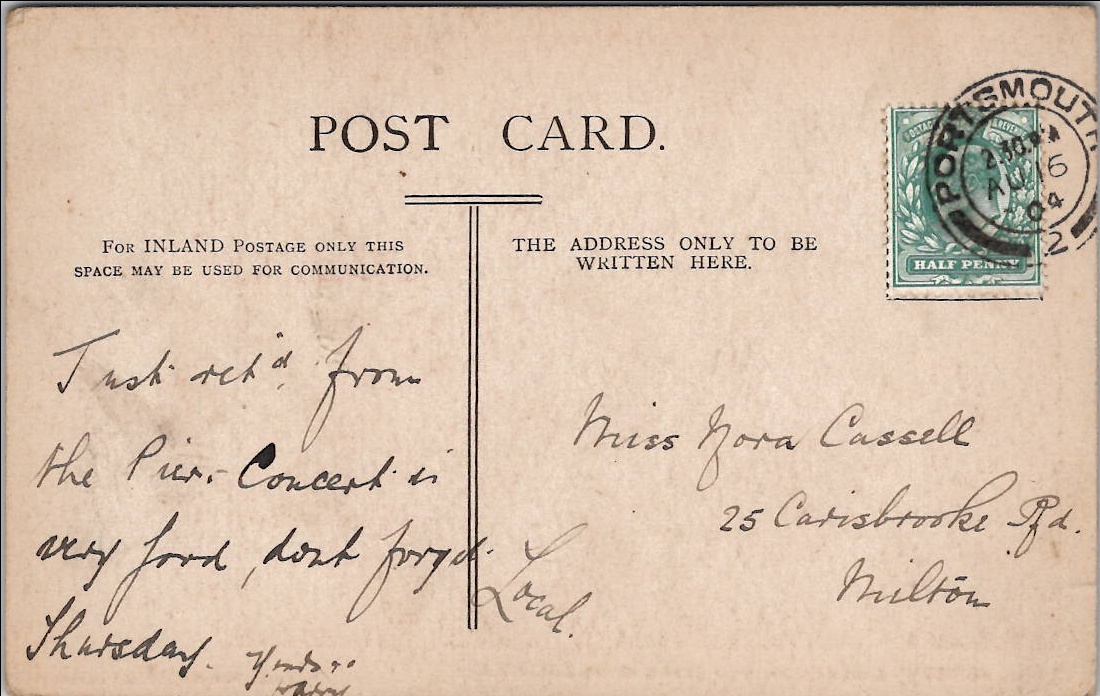 POST CARD.
FOR INLAND POSTAGE ONLY THIS
SPACE MAY BE USED FOR COMMUNICATION.
THE ADDRESS ONLY TO BE
WRITTEN HERE.
PORTSMOUTH
2.30
AU 16
04
2
HALF PENNY
Just ret'd. from
the Pier. Concert is
very good, dont forget
Thursday.
Harry
Local.
Miss Nora Cassell
25 Carisbrooke Rd.
Milton